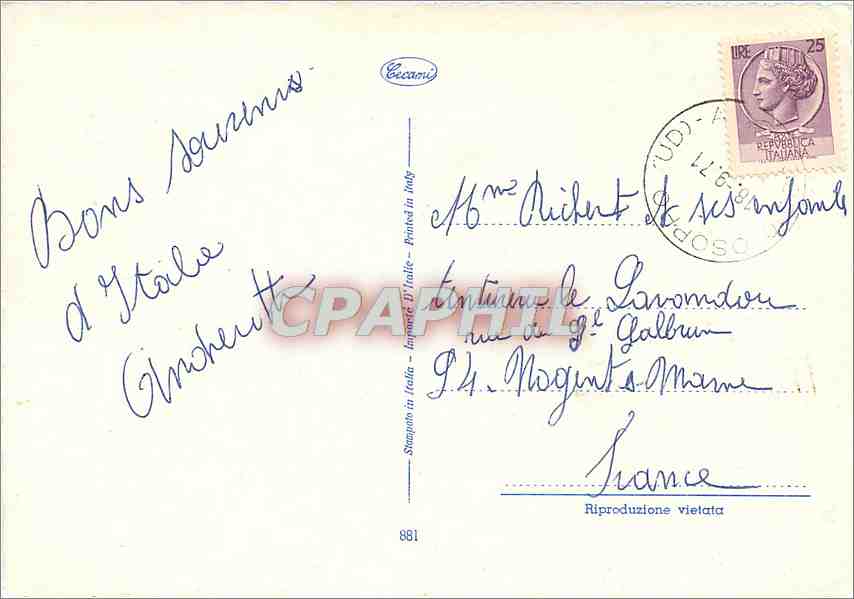 Cecami
LIRE 25
POSTE
REPVBBLICA
ITALIANA
OSOPPO (UD) - A
78.9.71
Bons souvenirs
d'Italie
Mme Richert & ses enfants
teinturerie le Lavandou
rue du Gl Galbrun
94. Nogent s Marne
France
Stampato in Italia - Importé D'Italie - Printed in Italy
CPAPHIL
Riproduzione vietata
881